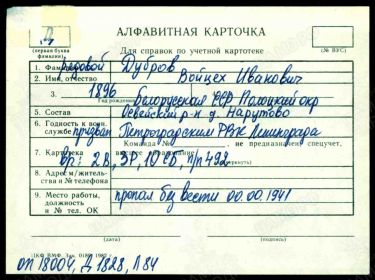 АЛФАВИТНАЯ КАРТОЧКА
Д
(первая буква фамилии)
Для справок по учетной картотеке
(№ ВУС)
1. Фамилия рядовой Дубров
2. Имя, отчество Войцех Иванович
3. 1896 Белорусская ССР Полоцкий окр
Год рождения
5. Состав Освейский р-н д. Нарутово
6. Годность к воин. службе призван Петроградским РВК Ленинграда
Команда №
не предназначен спецучет.
7. Картотека вр: 2В, ЗР, 10 СБ, п/п 492
8. Адрес м/жительства и № телефона
9. Место работы, должность и № тел. ОК пропал без вести 00.00.1941
(дата)
(подпись)
оп 18004, д 1828, л 84